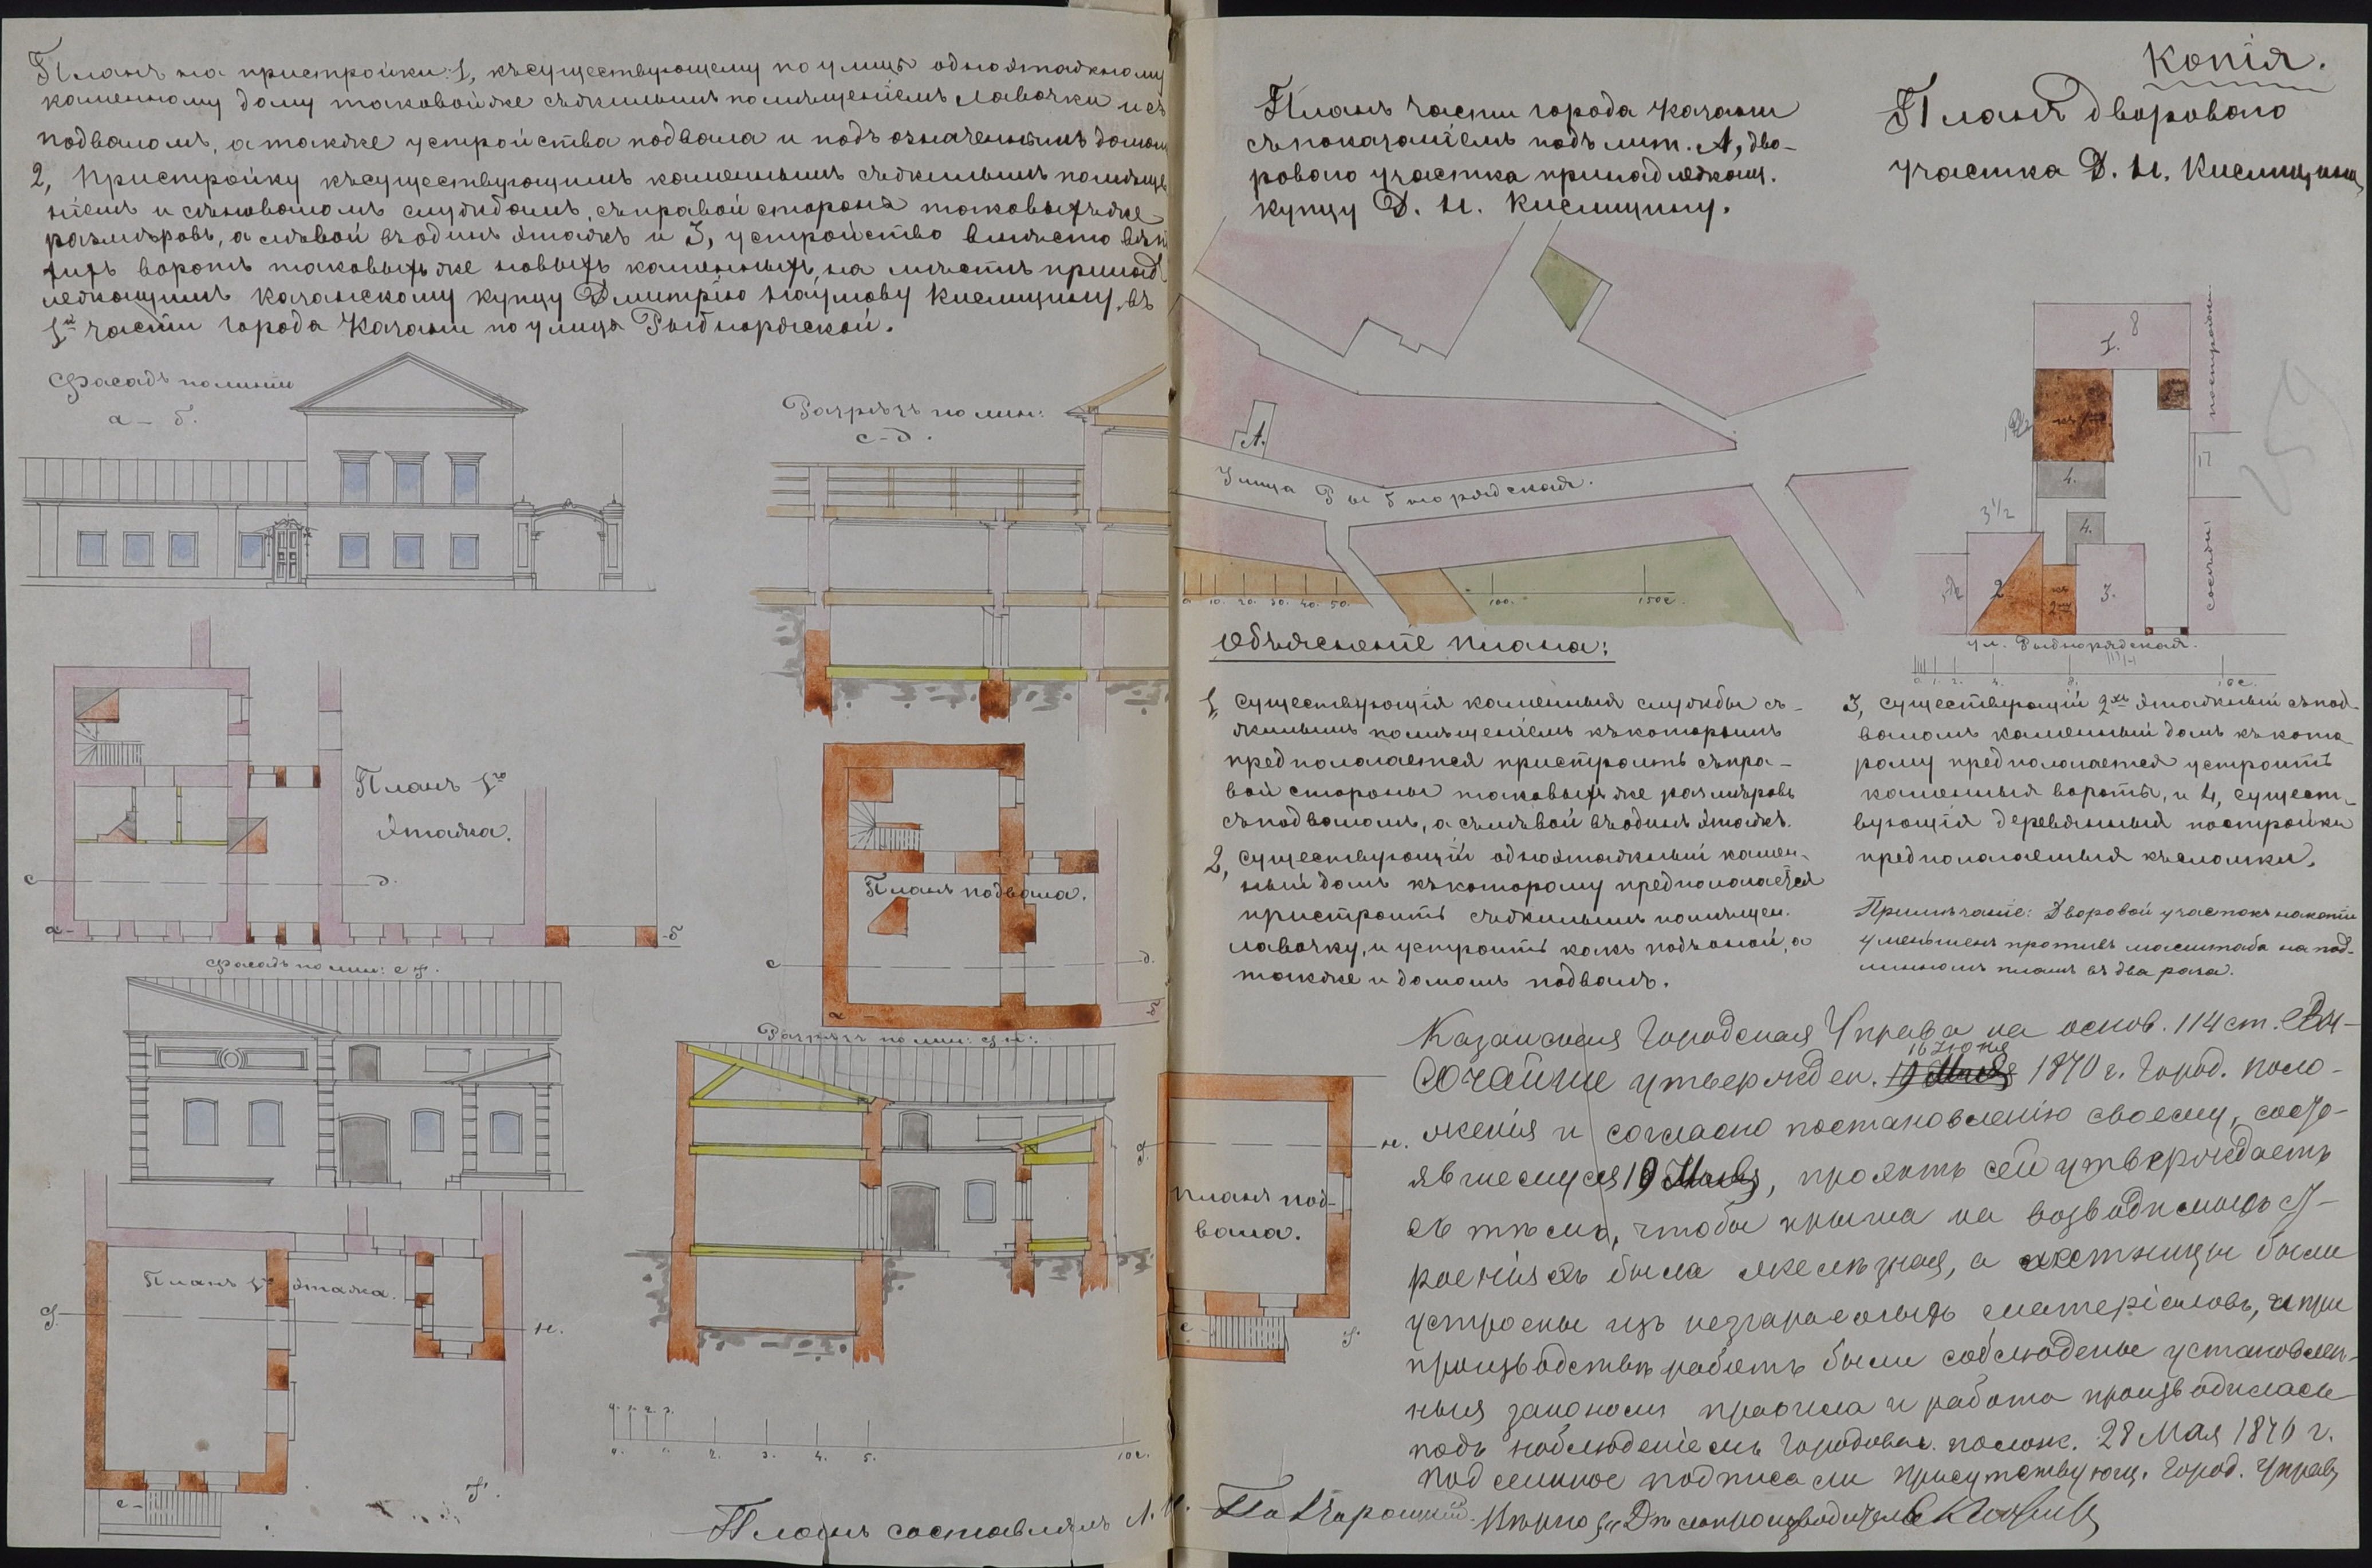 Планъ на пристройки: 1, къ существующему по улицѣ одноэтажному
каменному дому таковой же съ жилымъ помѣщеніемъ лавочки и съ
подваломъ, а также устройства подвала и подъ означеннымъ домомъ
2, Пристройку къ существующимъ каменнымъ съ жилымъ помѣще
ніемъ и сѣноваломъ службамъ, съ правой стороны таковыхъ же
размѣровъ, а съ лѣвой въ одинъ этажъ и 3, устройство вмѣсто вѣт
хихъ воротъ таковыхъ же новыхъ каменныхъ, на мѣстѣ принад
лежащимъ Казанскому купцу Дмитрію Наумову Кислицину, въ
1й части города Казани по улицѣ Рыбнорядской.
Фасадъ по линіи
а – б.
Разрѣзъ по лин:
с-д.
Планъ 1го
этажа.
с
д.
а
б
Планъ подвала.
с
д.
а
б
Фасадъ по лин: е ф.
Разрѣзъ по лин:
Планъ 1го этажа.
н.
е
ф.
0. 1. 2. 3. 4. 5. 10 с.
Планъ составлялъ
Копія.
Планъ части города Казани
съ показаніемъ подъ лит. А, дво-
роваго участка принадлежащ.
купцу Д. Н. Кислицину.
Планъ двороваго
участка Д. Н. Кислицина
А.
Улица Рыбнорядская.
0 10. 20. 30. 40. 50. 100. 150 с.
1. 8
4.
4.
3 1/2
2
3.
17
сосѣдній
ул. Рыбнорядская.
Объясненіе плана:
1, Существующія каменныя службы съ-
жилымъ помѣщеніемъ къ которымъ
предполагается пристроить съ пра-
вой стороны таковыхъ же размѣровъ
съ подваломъ, а съ лѣвой въ одинъ этажъ.
2, Существующій одноэтажный камен-
ный домъ къ которому предполагается
пристроить съ жилымъ помѣщен.
лавочку, и устроить какъ подъ оной, а
также и домомъ подвалъ.
3, Существующій 2хъ этажный съ под-
валомъ каменный домъ къ кото-
рому предполагается устроить
каменныя вороты, и 4, Сущест-
вующія деревянныя постройки
предполагаемыя къ сломки.
Примѣчаніе: Дворовой участокъ на копіи
уменьшенъ противъ масштаба на под-
линномъ планѣ въ два раза.
Казанская Городская Управа на основ. 114 ст. Вы-
16 Іюня
сочайше утвержден. 1870 г. Город. поло-
женія и согласно постановленію своему, состо-
явшемуся 19 , проэктъ сей утверждаетъ
съ тѣмъ, чтобы крыша на возводимыхъ ст-
роеніяхъ была желѣзная, а лестницы были
устроены изъ незгараемыхъ матеріаловъ, и при
производствѣ работъ были соблюдены установлен-
ныя закономъ правила и работа производилась
подъ наблюденіемъ Городоваг. полож. 28 Мая 1876 г.
Подлинное подписали присутствующ. Город. Управ
Вѣрно: Дѣлопроизводитель
н.
Планъ под-
вала.
е
ф.